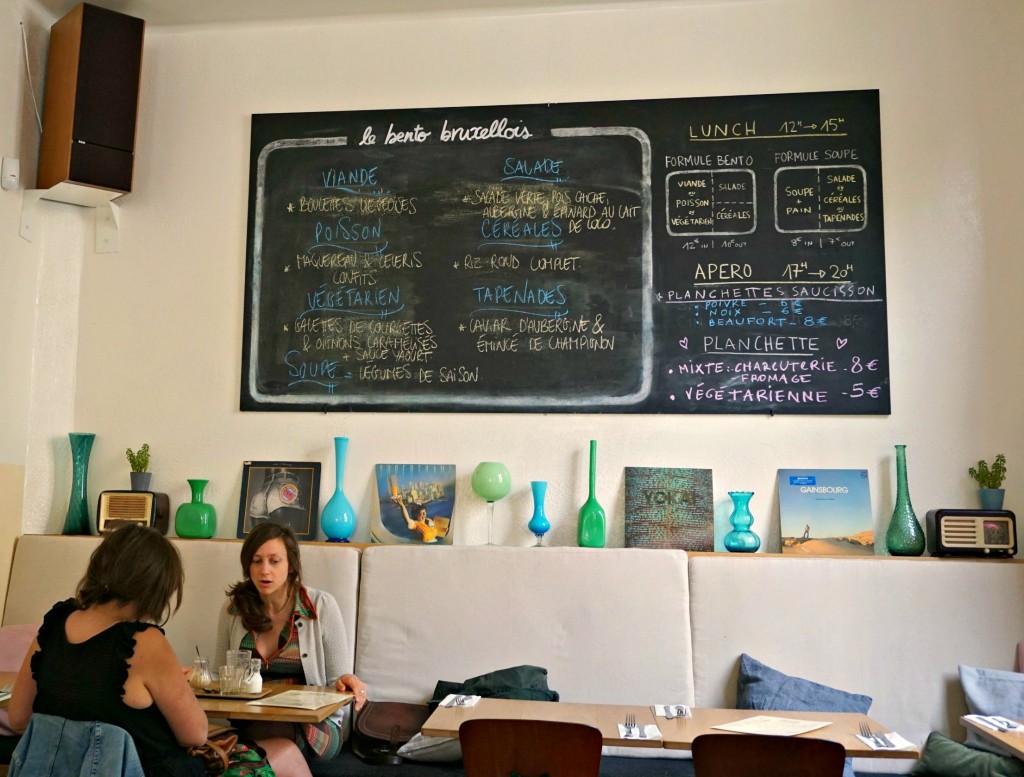 le bento bruxellois
VIANDE
* BOULETTES
POISSON
* MAQUEREAU & CELERIS
CONFITS
VÉGÉTARIEN
* GALETTES DE COURGETTES
& OIGNONS CARAMELISES
+ SAUCE YAOURT
SOUPE - LEGUMES DE SAISON
SALADE
* SALADE VERTE, POIS CHICHE,
AUBERGINE & EPINARD AU LAIT
DE COCO.
CÉRÉALES
* RIZ ROND COMPLET
TAPENADES
* CAVIAR D'AUBERGINE &
ÉMINCÉ DE CHAMPIGNON
LUNCH 12H→15H
FORMULE BENTO
VIANDE
ou
POISSON
ou
VÉGÉTARIEN
SALADE
CÉRÉALES
12€ IN | 10€ OUT
FORMULE SOUPE
SOUPE
+
PAIN
SALADE
ou
CÉRÉALES
ou
TAPENADES
8€ IN | 7€ OUT
APERO 17H→20H
* PLANCHETTES SAUCISSON
• POIVRE - 6€
• NOIX - 6€
• BEAUFORT - 8€
♡ PLANCHETTE ♡
• MIXTE: CHARCUTERIE - 8€
FROMAGE
• VÉGÉTARIENNE - 5€
GAINSBOURG